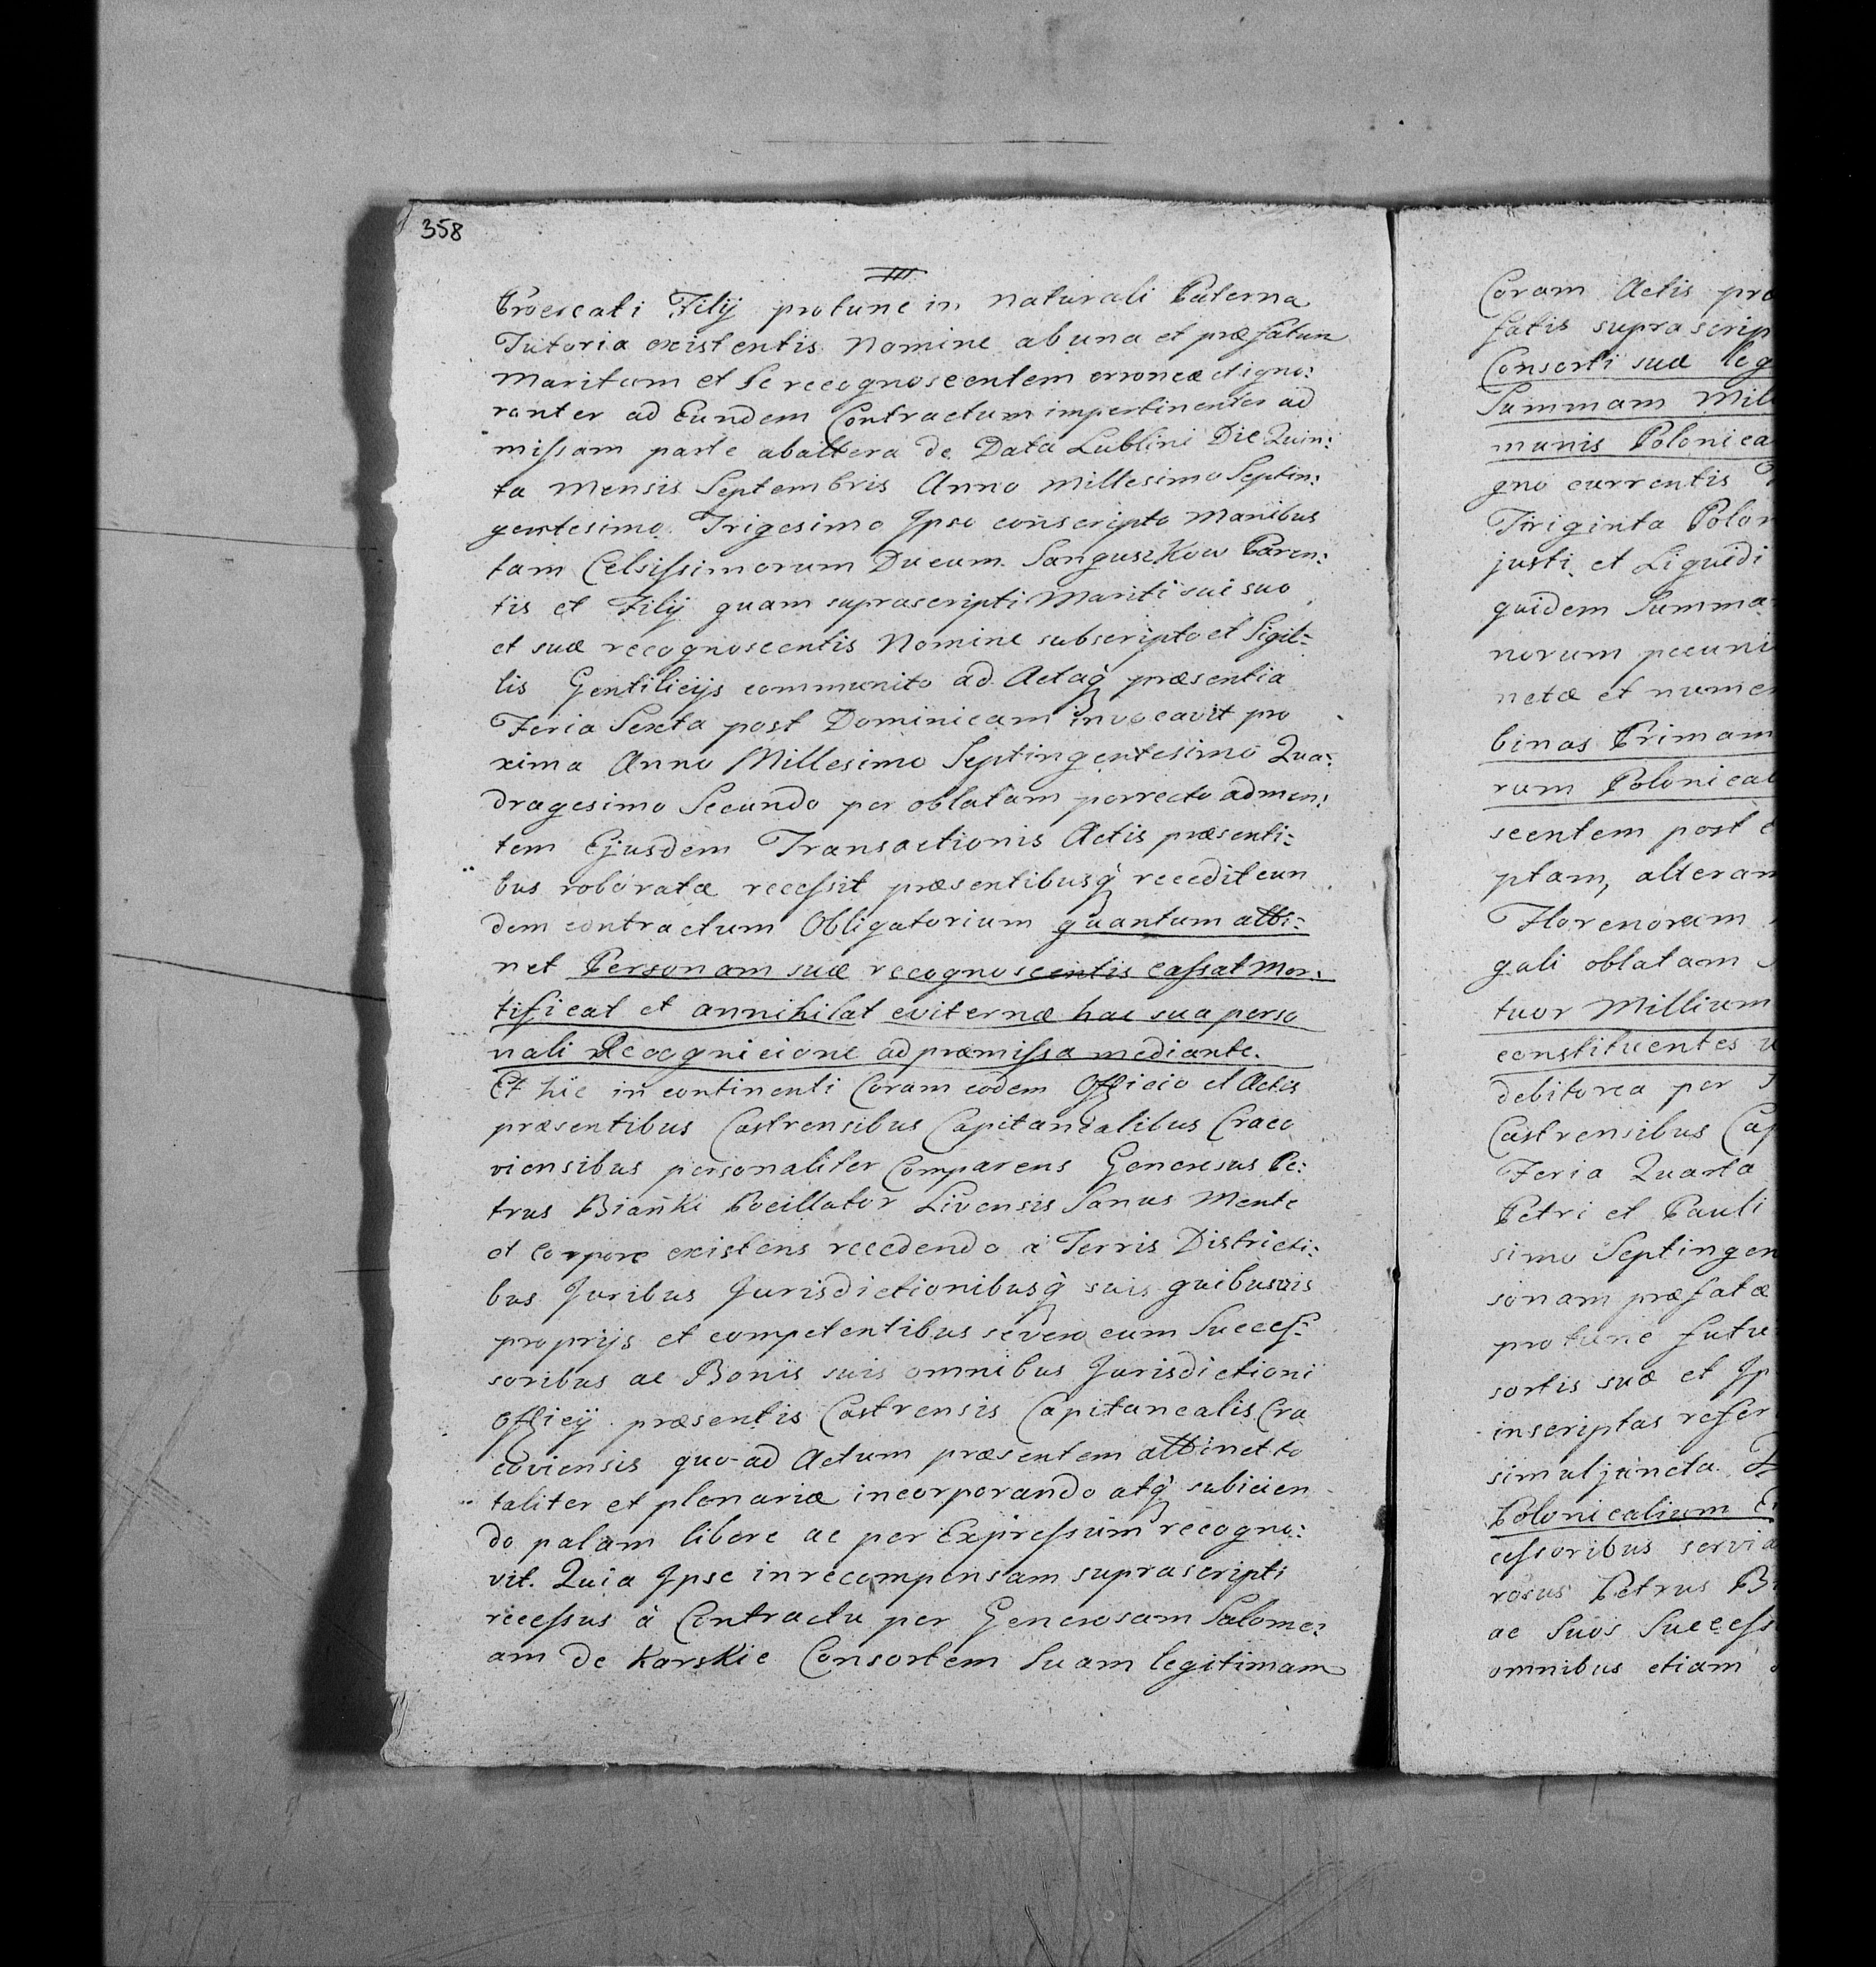 358
Procreati Filij protunc in naturali Paterna
Tutoria existentis Nomine ab una et præfatum
Maritum et Se recognoscentem erroneæ et igno:
ranter ad Eundem Contractum impertinenter ad
missam parte ab altera de Data Lublini Die Quin:
ta Mensis Septembris Anno Millesimo Septin:
gentesimo Trigesimo Ipso conscripto Manibus
tam Celsissimorum Ducum Sanguszkow Paren:
tis et Filij quam suprascripti Mariti sui suo
et suæ recognoscentis Nomine subscripto et Sigil:
lis Gentilicijs communito ad Actaq præsentia
Feria Sexta post Dominicam invocavit pro
xima Anno Millesimo Septingentesimo Qua:
dragesimo Secundo per oblatam porrecto ad men:
tem Ejusdem Transactionis Actis præsenti:
bus roboratæ recessit præsentibusq recedit eun
dem contractum Obligatorium quantum atti:
net Personam suæ recognoscentis Cassat Mor:
tificat et annihilat eviternæ hac sua perso
nali Recognicione ad præmissa mediante.
Et hic in continenti Coram eodem Officio et Actis
præsentibus Castrensibus Capitanealibus Craco
viensibus personaliter Comparens Generosus Pe:
trus Biański Pocillator Livensis Sanus Mente
et Corpore existens recedendo à Terris Districti:
bus Juribus Jurisdictionibusq suis quibusvis
proprijs et competentibus severo cum Succes:
soribus ac Bonis suis omnibus Jurisdictioni
Officij præsentis Castrensis Capitanealis Cra
coviensis quo-ad Actum præsentem attinet to
taliter et plenariæ incorporando atq subicien
do palam libere ac per Expressum recogno:
vit. Quia Ipse in recompensam suprascripti
recessus à Contractu per Generosam Salome:
am de Karskie Consortem Suam legitimam
Coram Actis pro
fatis suprascrip
Consorti suæ leg
Summam Mill
manis Polonica
gno currentis
Triginta Polon
justi et Liquidi
quidem Summa
norum pecuni
netæ et numer
binas Primam
rum Polonical
scentem post
ptam, alteram
Florenorum
gali oblatam
tuor Millium
constituentes
debitorea per
Castrensibus Cap
Feria Quarta
Petri et Pauli
simo Septingen
sonam præfatæ
protunc futu
sortis suæ et Ip
inscriptas refer
simul juncta
Polonicalium
cessoribus servia
rosus Petrus Bi
ac Suos Success
omnibus etiam